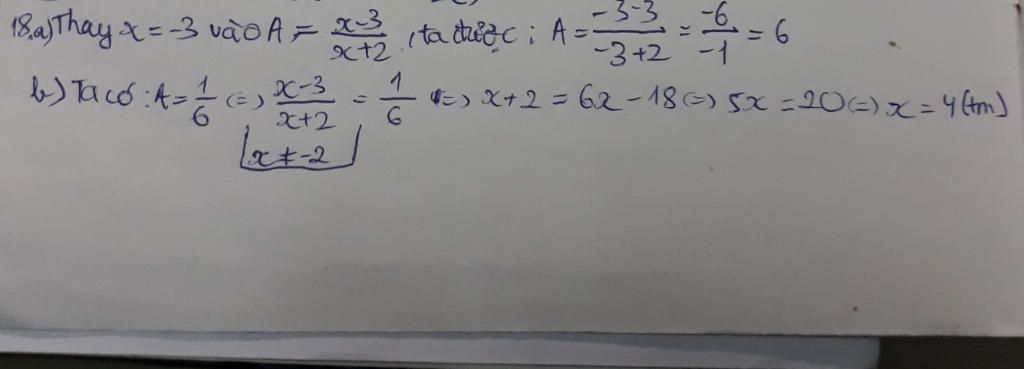 18.a) Thay x = -3 vào A = \frac{x-3}{x+2}, ta được: A = \frac{-3-3}{-3+2} = \frac{-6}{-1} = 6
b) Ta có: A = \frac{1}{6} (=) \frac{x-3}{x+2} = \frac{1}{6} (=) x+2 = 6x-18 (=) 5x = 20 (=) x = 4 (tm)
x ≠ -2